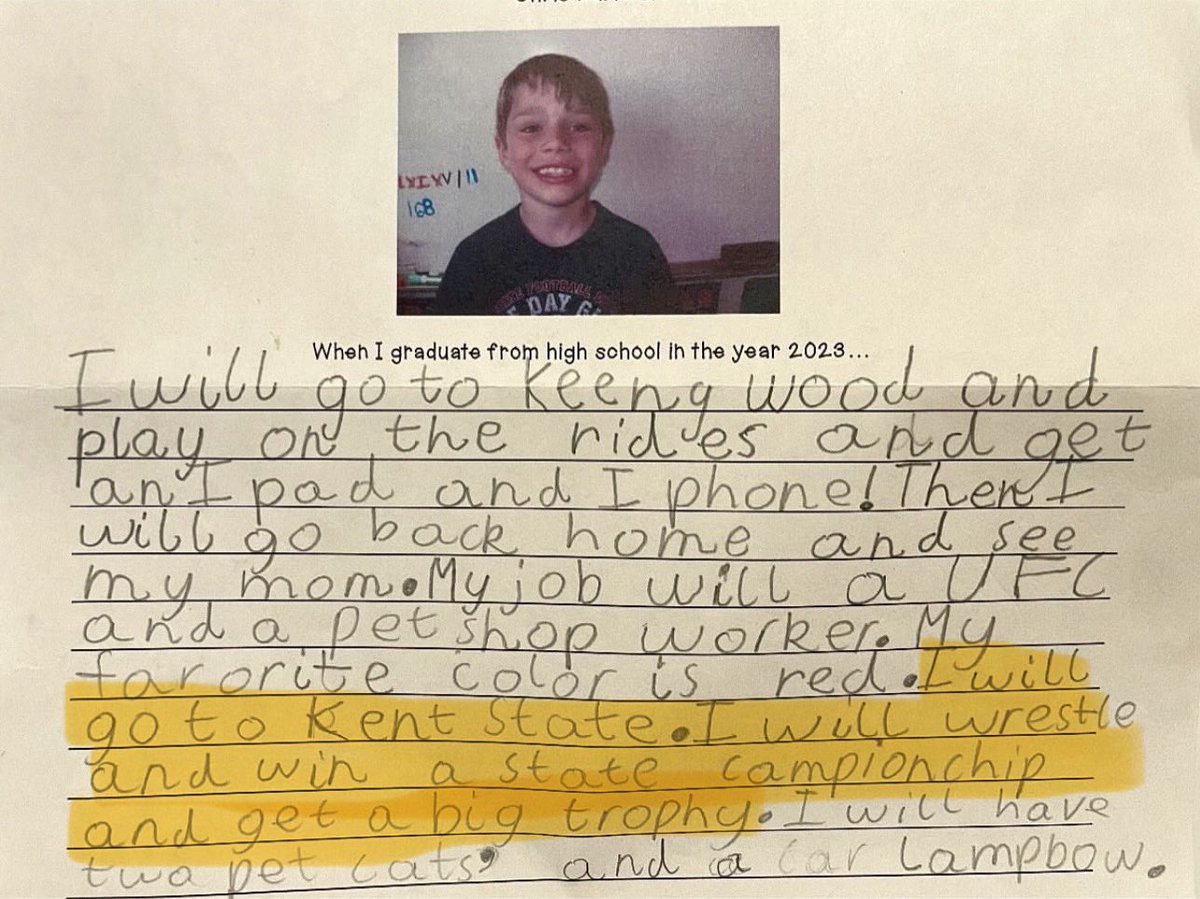 LXIXV/11
168
DAY G
When I graduate from high school in the year 2023...
I will go to Keeng wood and
play on the rides and get
an I pad and I phone! Then I
will go back home and see
my mom. My job will a UFC
and a pet shop worker. My
farorite color is red. I will
go to Kent state. I will wrestle
and win a state campionchip
and get a big trophy. I will have
two pet cats, and a car Lampbow.